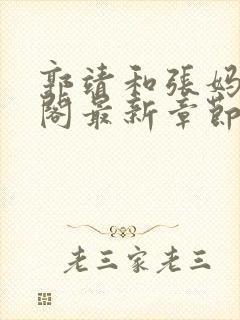 郭靖和張媽
閣最新章節
老三家老三